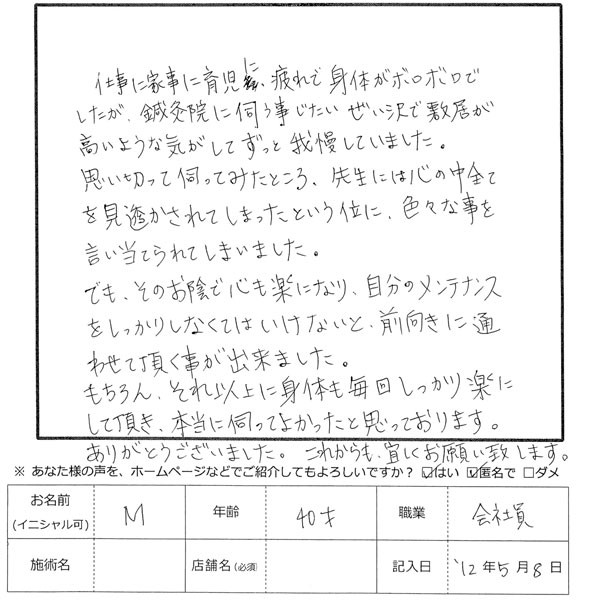 仕事に家事に育児に、疲れで身体がボロボロで
したが、鍼灸院に伺う事じたい ぜい沢で敷居が
高いような気がしてずっと我慢していました。
思い切って伺ってみたところ、先生には心の中全て
を見透かされてしまったという位に、色々な事を
言い当てられてしまいました。
でも、そのお陰で心も楽になり、自分のメンテナンス
をしっかりしなくてはいけないと、前向きに通
わせて頂く事が出来ました。
もちろん、それ以上に身体も毎回しっかり楽に
して頂き、本当に伺ってよかったと思っております。
ありがとうございました。これからも、宜しくお願い致します。
※ あなた様の声を、ホームページなどでご紹介してもよろしいですか？ ☑はい ☑匿名で □ダメ
お名前 (イニシャル可) M 年齢 40才 職業 会社員
施術名 店舗名(必須) 記入日 '12年5月8日